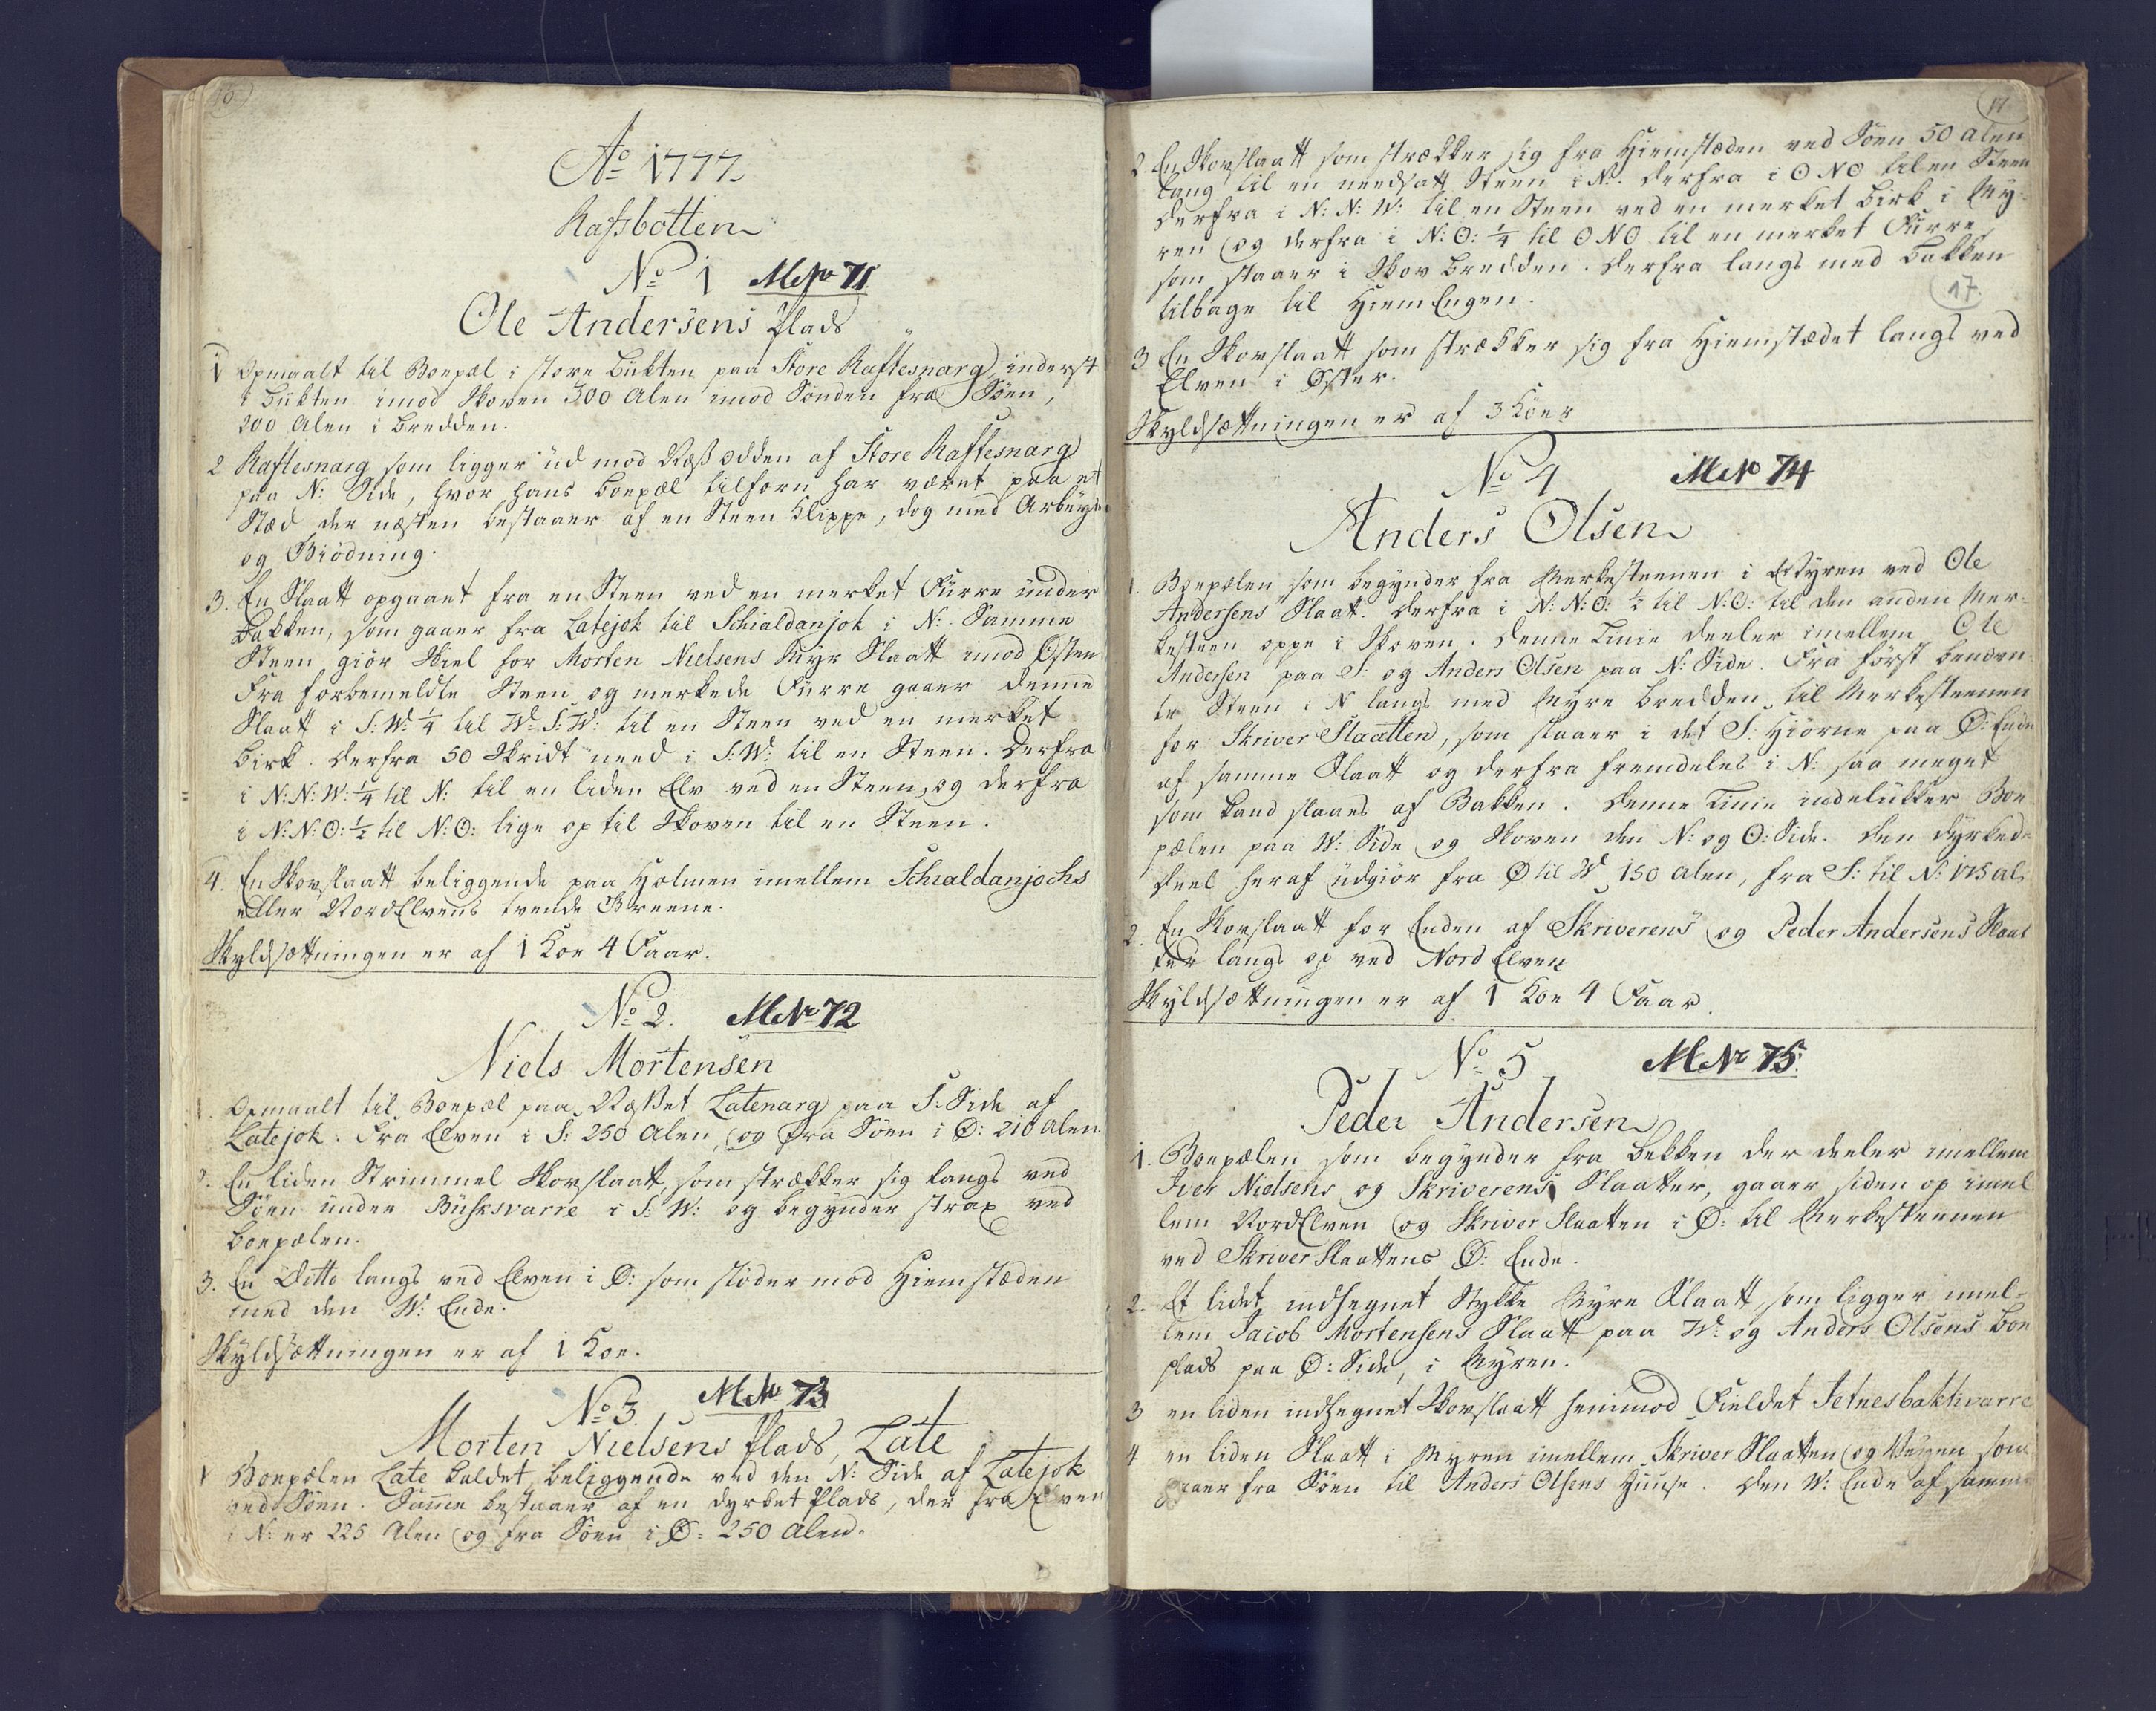 16
Ao 1777
Rafsbotten
No 1 MNo 71
Ole Andersens Plads
1 Opmaalt til Boepæl i store Bugten paa Store Raftesnarg inderst
i Bugten imod Skoven 300 Alen imod Sønden fra Søen,
200 Alen i Bredden.
2 Raftesnarg som ligger ud mod Næß odden af Store Raftesnarg
paa N: Side, hvor hans Boepæl tilforn har været paa et
Stæd der næsten bestaaer af en Steen Klippe, dog med Arbeyde
og Giødning.
3. En Slaatt opgaaet fra en Steen ved en merket Furre under
Bakken, som gaaer fra Latejok til Schialdanjok i N: Samme
Steen giør Skiel for Morten Nielsens Myr Slaatt imod Østen.
Fra forbemeldte Steen og merkede Furre gaaer denne
Slaatt i S:W: 1/4 til W:S:W: til en Steen ved en merket
Birk. derfra 50 Skridt need i S:W: til en Steen. Derfra
i N:N:W: 1/4 til N: til en liden Elv ved en Steen, og derfra
i N:N:O: 1/2 til N:O: lige op til Skoven til en Steen.
4. En Skovslaatt beliggende paa Holmen imellem Schialdanjochs
eller NordElvens tvende Greene.
Skyldsætningen er af 1 Koe 4 Faar.
No 2. MNo 72
Niels Mortensen
1. Opmaalt til Boepæl paa Næßet Latenarg paa S: Side af
Latejok. Fra Elven i S: 250 Alen, og fra Søen i Ø: 210 Alen.
2. En liden Strimmel Skovslaatt, som strækker sig langs ved
Søen under Busksvarre i S:W: og begynder strax ved
Boepælen.
3. En Ditto langs ved Elven i Ø: som støder mod Hiemstæden
med den W: Ende.
Skyldsætningen er af 1 Koe.
No 3. MNo 73
Morten Nielsens Plads, Late
1 Boepælen Late kaldet, beliggende ved den N: Side af Latejok
ved Søen. Samme bestaaer af en dyrket Plads, der fra Elven
i N: er 225 Alen og fra Søen i Ø: 250 Alen.
17
2. En Skovslaatt som strækker sig fra Hiemstæden ved Søen 50 Alen
lang til en needsatt Steen i N. derfra i ONO til en Steen
derfra i N:N:W: til en Steen ved en merket Birk i My-
ren og derfra i N:O: 1/4 til ONO til en merket Furre
som staaer i Skov Bredden. derfra langs med Bakken
tilbage til HiemEngen.
17
3 En Skovslaatt som strækker sig fra Hiemstædet langs ved
Elven i Øster.
Skyldsætningen er af 3 Køer
No 4 MNo 74
Anders Olsen
1. Boepælen som begynder fra Merkesteenen i Myren ved Ole
Andersens Slaat. derfra i N:N:O: 1/2 til N:O: til den anden Mer-
kesteen oppe i Skoven. denne Linie deeler imellem Ole
Andersen paa S: og Anders Olsen paa N: Side. Fra først benævn-
te Steen i N langs med Myre Bredden til Merkesteenen
for Skriver Slaatten, som staaer i det S: Hiørne paa Ø: Ende
af samme Slaatt og derfra fremdeles i N: saa meget
som kand slaaes af Bakken. denne Linie indelukker Boe-
pælen paa W: Side og Skoven den N: og O: Side. den dyrkede
Deel heraf udgiør fra Ø til W 150 Alen, fra S: til N: 125 al.
2. En Skovslaatt for Enden af Skriverens og Peder Andersens Slaat
ter langs op ved Nord Elven
Skyldsætningen er af 1 Koe 4 Faar.
No 5 MNo 75.
Peder Andersen
1. Boepælen som begynder fra Bekken der deeler imellem
Iver Nielsens og Skriverens Slaatter, gaaer siden op imel
lem NordElven og Skriver Slaatten i Ø: til Merkesteenen
ved Skriver Slaattens Ø: Ende.
2. Et lidet indhegnet Stykke Myre Slaatt, som ligger imel-
lem Jacob Mortensens Slaatt paa W: og Anders Olsens Boe
plads paa Ø: Side, i Myren.
3 en liden indhegnet Skovslaatt henimod Fieldet Jetnesbakhvarre
4 en liden Slaatt i Myren imellem Skriver Slaatten og Veigen som
gaaer fra Søen til Anders Olsens Huuse. den W: Ende af samme